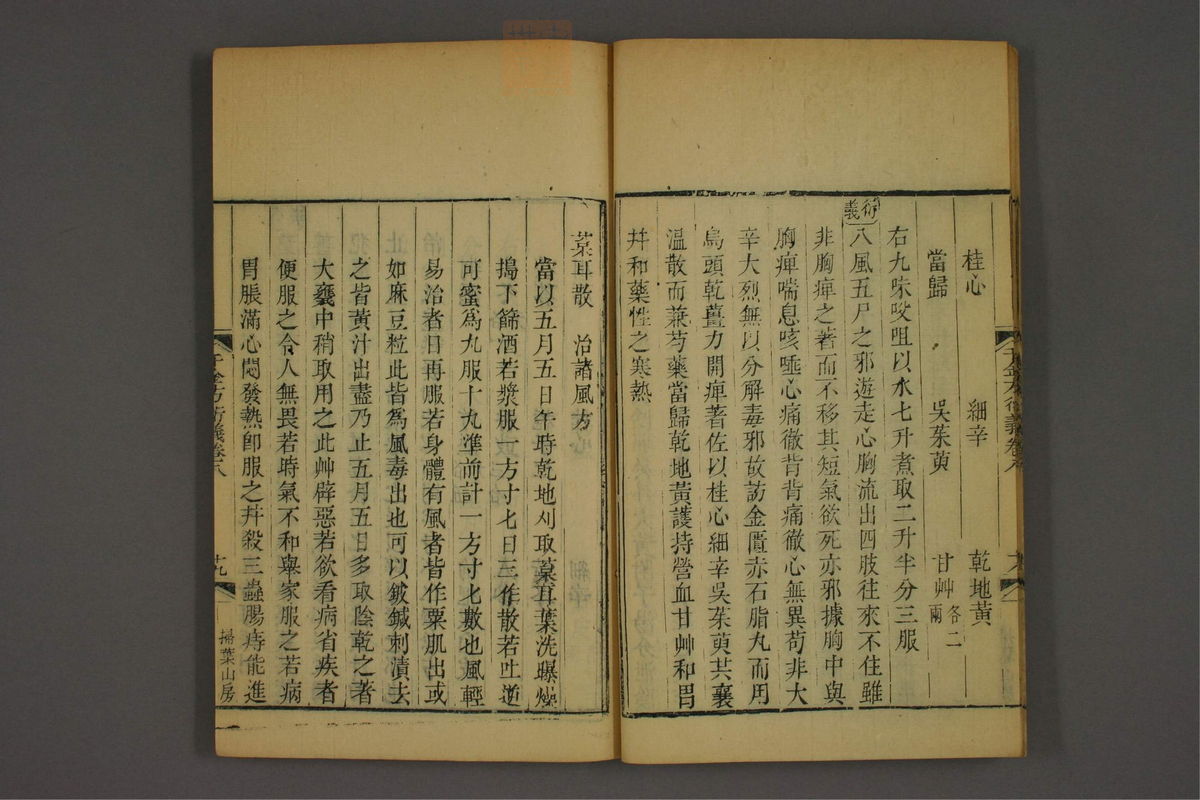 桂心　細辛　乾地黃
當歸　吳茱萸　甘艸各二兩
右九味㕮咀以水七升煮取二升半分三服
衍義
八風五尸之邪遊走心胸流出四肢往來不住雖
非胸痺之著而不移其短氣欲死亦邪據胸中與
胸痺喘息咳唾心痛徹背背痛徹心無異苟非大
辛大烈無以分解毒邪故訪金匱赤石脂丸而用
烏頭乾薑力開痺著佐以桂心細辛吳茱萸共襄
溫散而兼芍藥當歸乾地黃護持營血甘艸和胃
幷和藥性之寒熱
千金方衍義卷八
葈耳散　治諸風方
當以五月五日午時乾地刈取葈耳葉洗曝燥
搗下篩酒若漿服一方寸七日三作散若吐逆
可蜜為丸服十丸準前計一方寸七數也風輕
易治者日再服若身體有風者皆作粟肌出或
如麻豆粒此皆為風毒出也可以鈹鍼刺潰去
之皆黃汁出盡乃止五月五日多取陰乾之著
大甕中稍取用之此艸辟惡若欲看病省疾者
便服之令人無畏若時氣不和舉家服之若病
胃脹滿心悶發熱卽服之幷殺三蟲腸痔能進
千金方衍義卷八
十九
掃葉山房